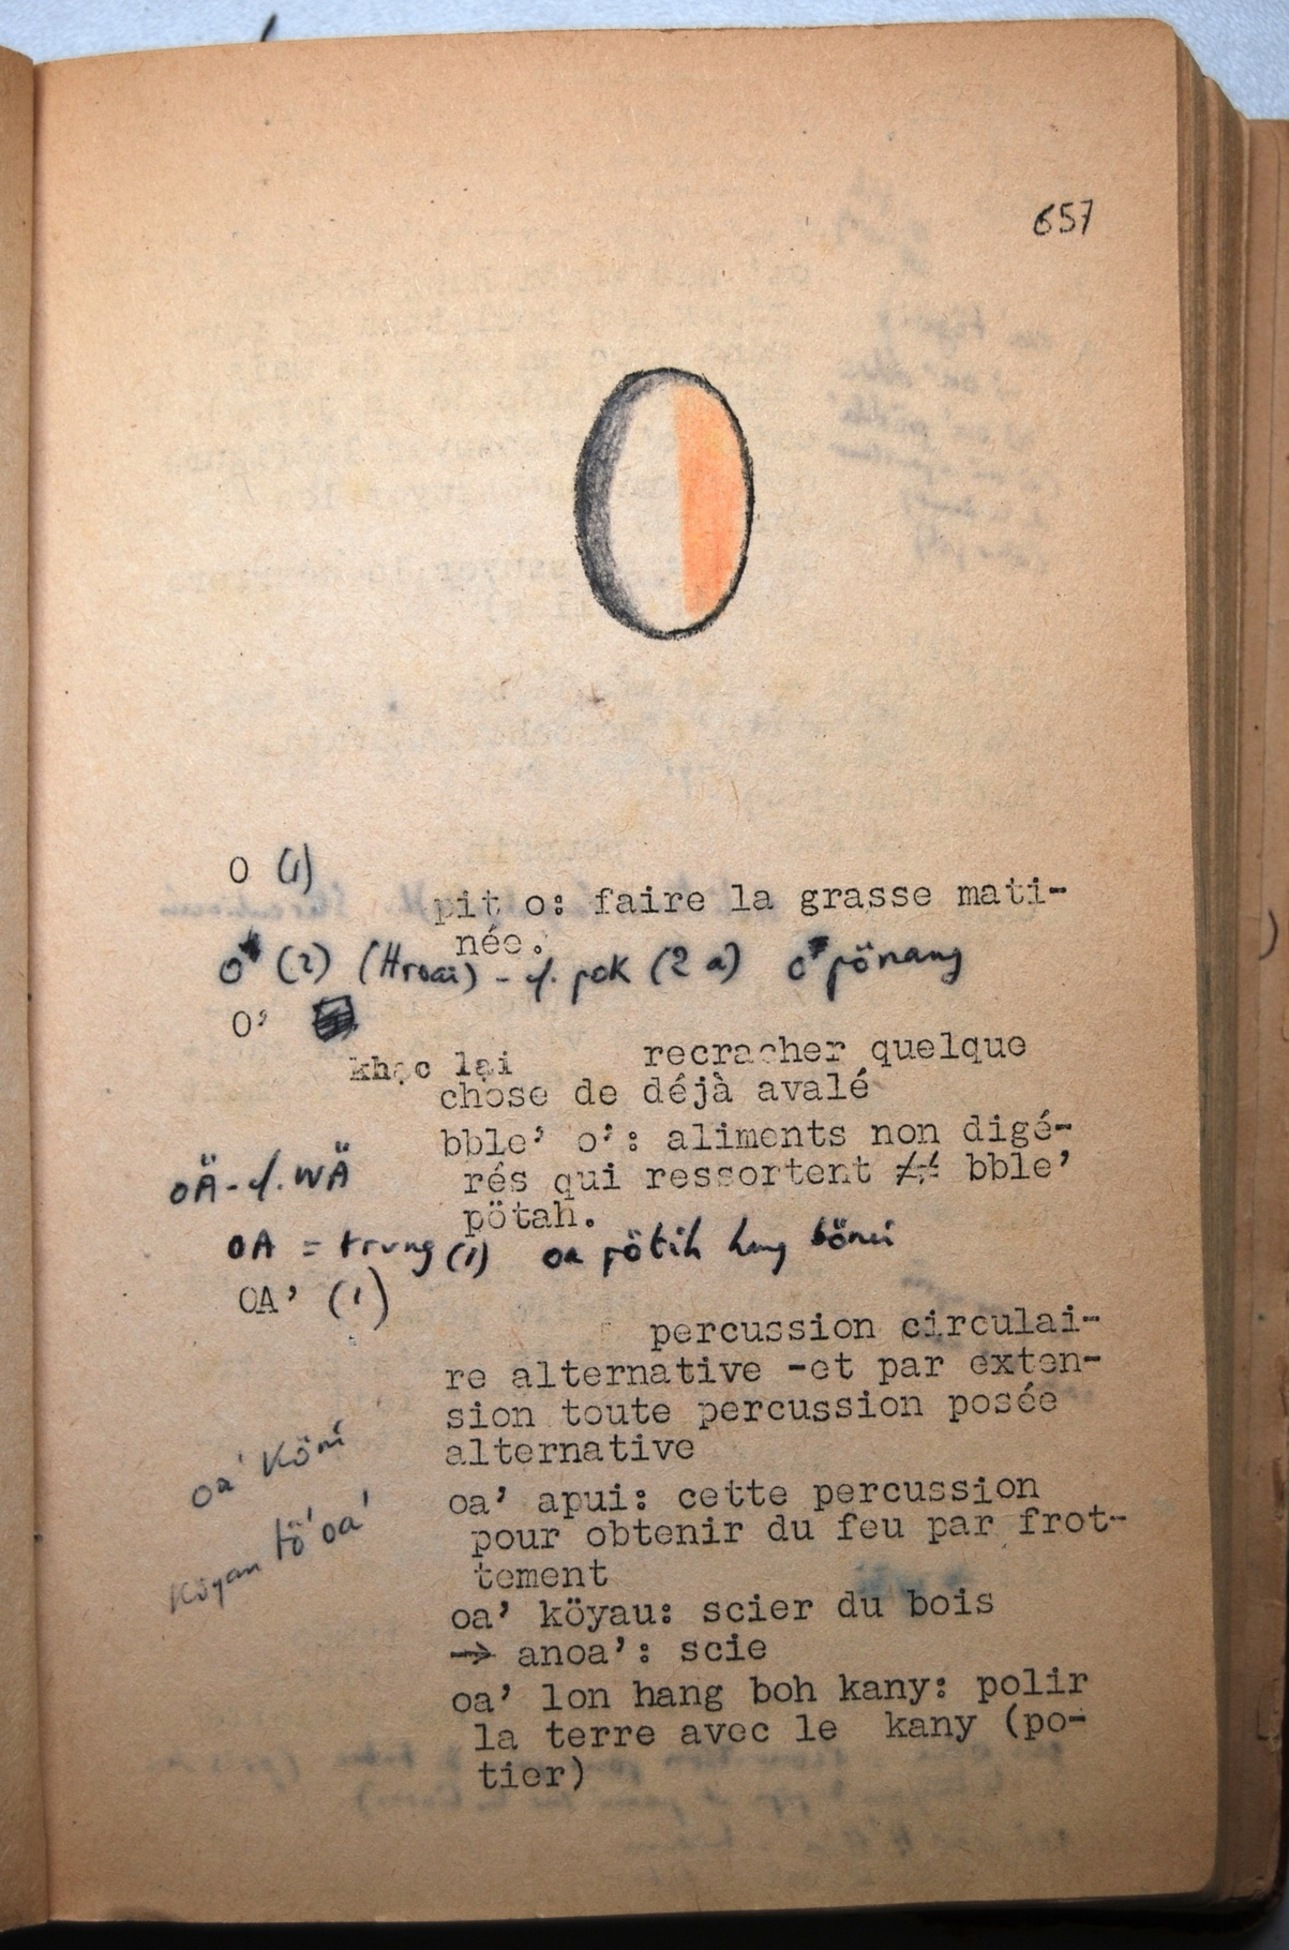 657
O
O (1)
pit o: faire la grasse mati-
née.
O (2) (Hroai) - cf. pok (2 a) o pönang
O’
khạc lại recracher quelque
chose de déjà avalé
bble’ o’: aliments non digé-
rés qui ressortent ≠ bble’
pötah.
OÄ - cf. WÄ
OA = trung (1) oa pötih hang
OA’ (1)
percussion circulai-
re alternative -et par exten-
sion toute percussion posée
alternative
oa’ apui: cette percussion
pour obtenir du feu par frot-
tement
oa’ köyau: scier du bois
→ anoa’: scie
oa’ lon hang boh kany: polir
la terre avec le kany (po-
tier)
oa'
tö' oa'